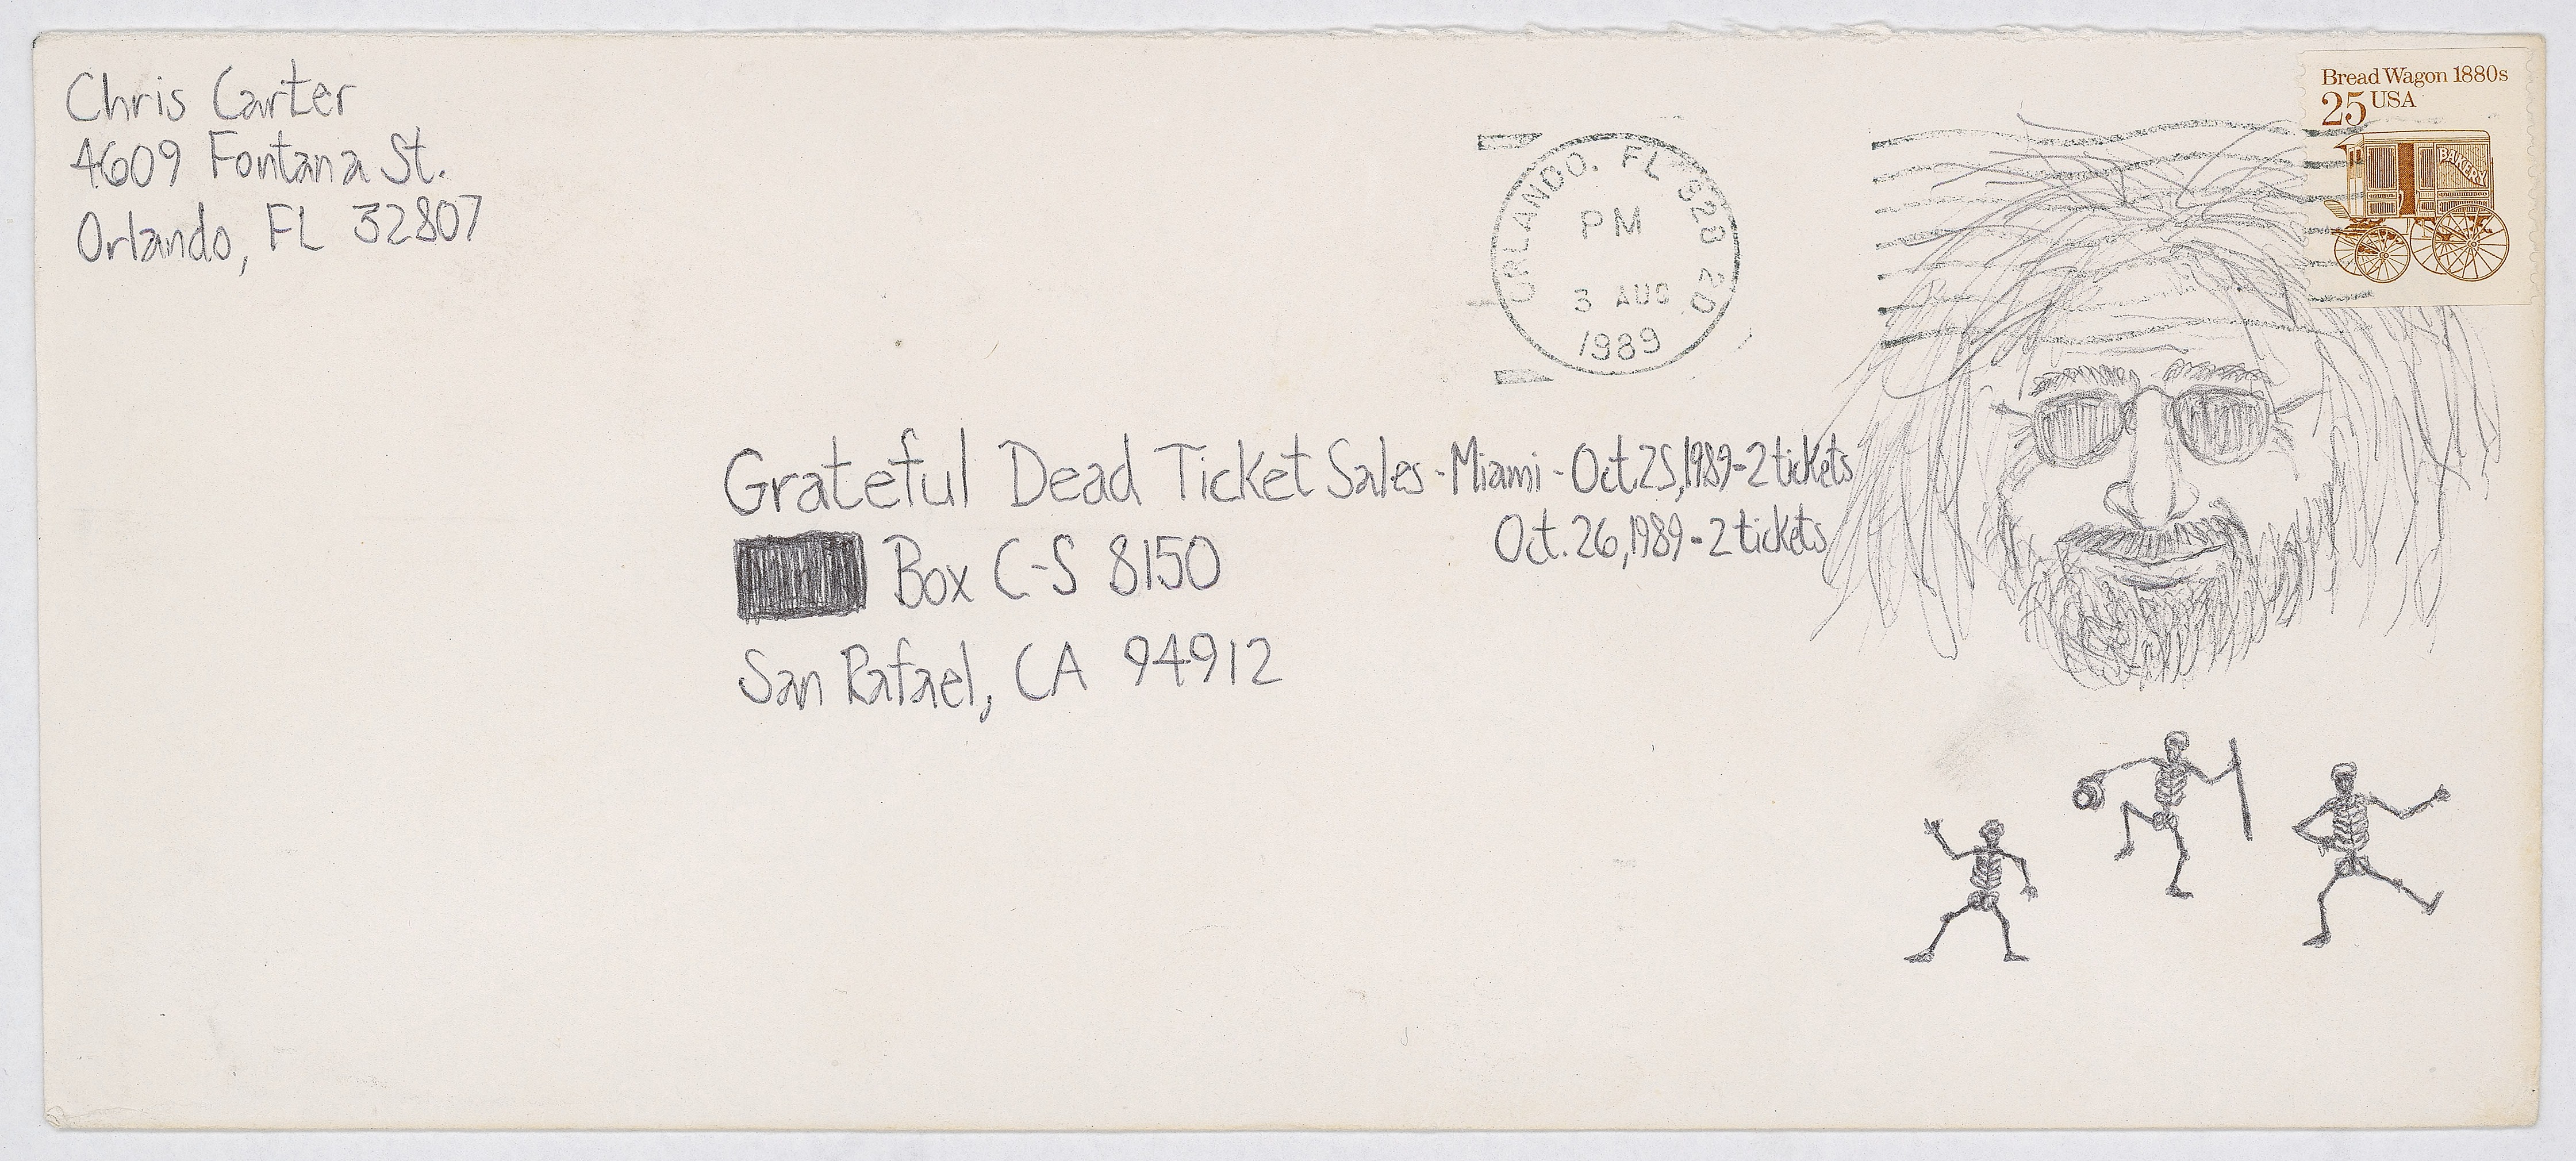 Chris Carter
4609 Fontana St.
Orlando, FL 32807
Bread Wagon 1880s
25 USA
BAKERY
ORLANDO, FL 328 20
PM
3 AUG
1989
Grateful Dead Ticket Sales - Miami - Oct. 25, 1989 - 2 tickets
Oct. 26, 1989 - 2 tickets
Box C-S 8150
San Rafael, CA 94912